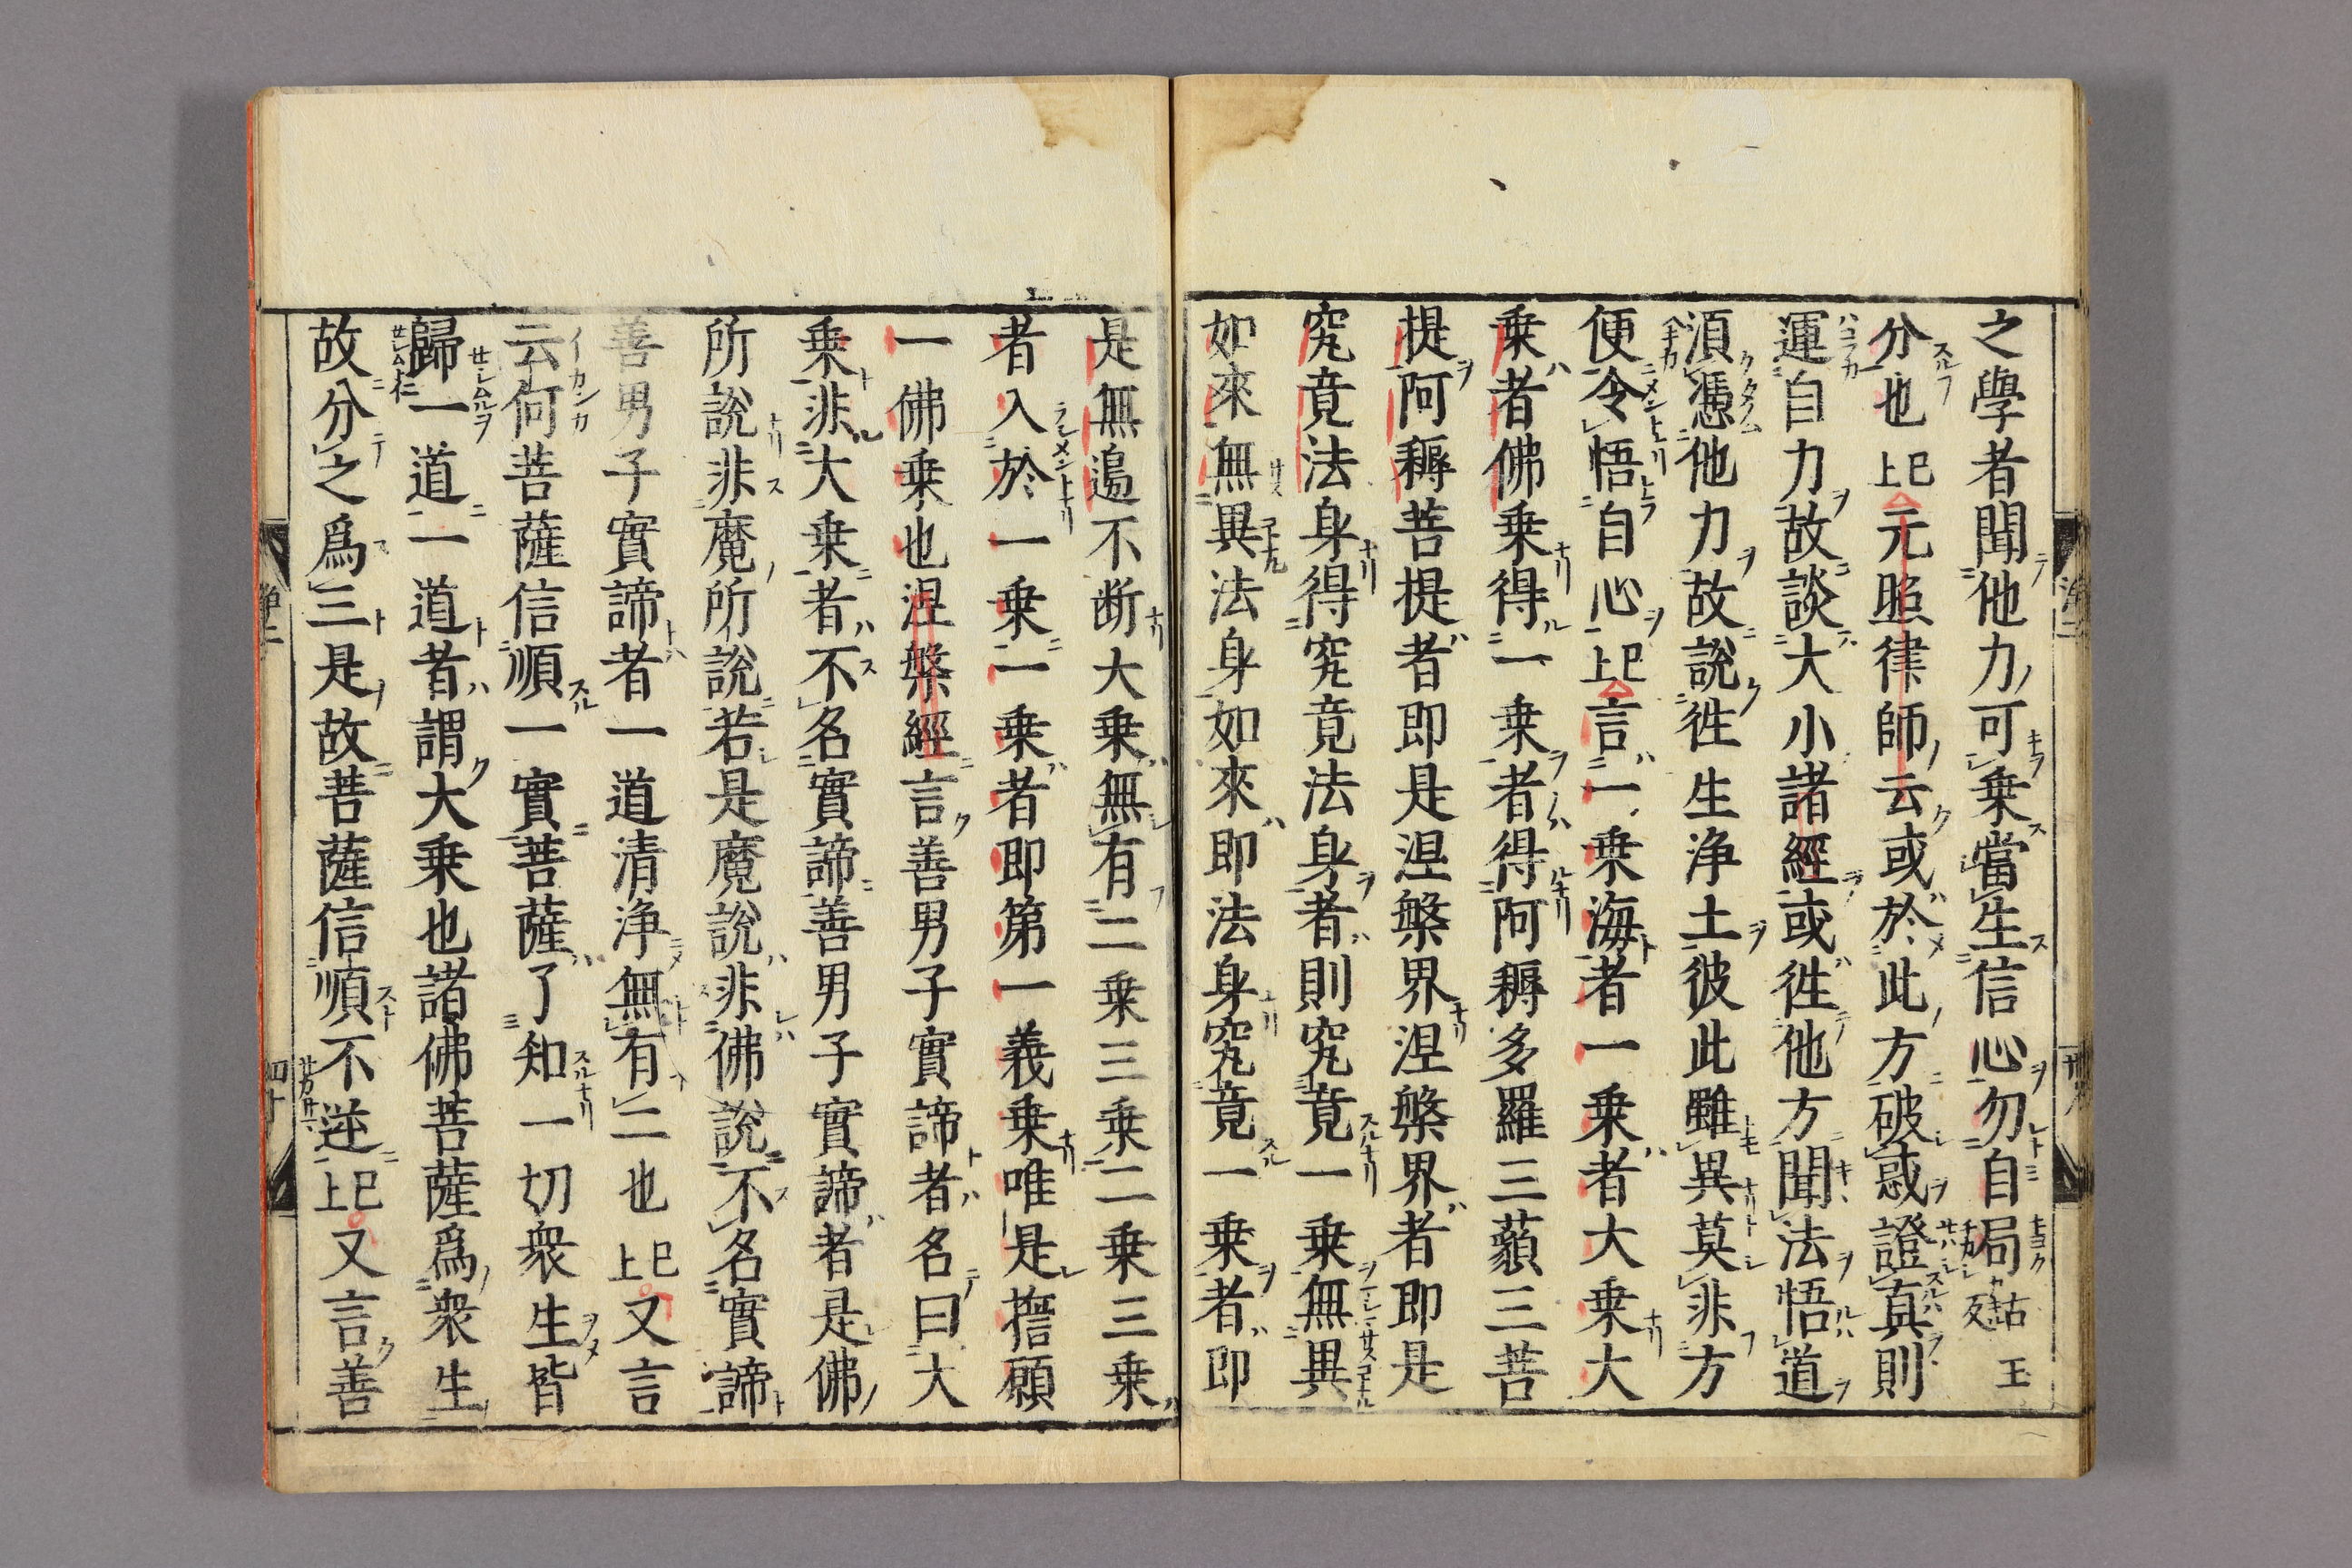 之學者聞他力可乗當生信心勿自局玉
分也已上元照律師云或於此方破惑證真則
運自力故談大小諸經或徃他方聞法悟道
須憑他力故說徃生浄土彼此雖異莫非方
便令悟自心已上言一乗海者一乗者大乗大
乗者佛乗得一乗者得阿耨多羅三藐三菩
提阿耨菩提者即是涅槃界涅槃界者即是
究竟法身得究竟法身者則究竟一乗無異
如來無異法身如來即法身究竟一乗者即
是無邉不断大乗無有二乗三乗二乗三乗
者入於一乗一乗者即第一義乗唯是擔願
一佛乗也涅槃經言善男子實諦者名曰大
乗非大乗者不名實諦善男子實諦者是佛
所說非魔所說若是魔說非佛說不名實諦
善男子實諦者一道清浄無有二也已上又言
云何菩薩信順一實菩薩了知一切衆生皆
歸一道一道者謂大乗也諸佛菩薩爲衆生
故分之爲三是故菩薩信順不逆已上又言善